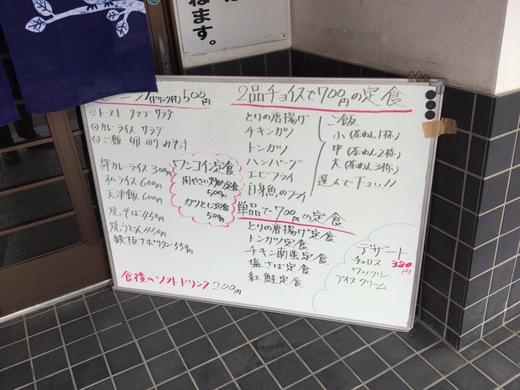 は
ねます。
(ドリンク付) 500円
トースト タマゴ サラダ
カレーライス サラダ
ご飯 卵 のり みそ汁
カレーライス 300円
オムライス 600円
天津飯 600円
焼そば 450円
焼うどん 450円
鉄板ナポリタン 550円
食後のソフトドリンク 200円
ワンコイン定食
500円
500円
2品チョイスで700円の定食
とりの唐揚げ
チキンカツ
トンカツ
ハンバーグ
エビフライ
白身魚のフライ
ご飯
小(茶わん1杯)
中(茶わん2杯)
大(茶わん3杯)
選んで下さい!!
単品で700円の定食
とりの唐揚げ定食
トンカツ定食
チキン南蛮定食
塩さば定食
紅鮭定食
デザート
チュロス
ワッフル
アイスクリーム
380円